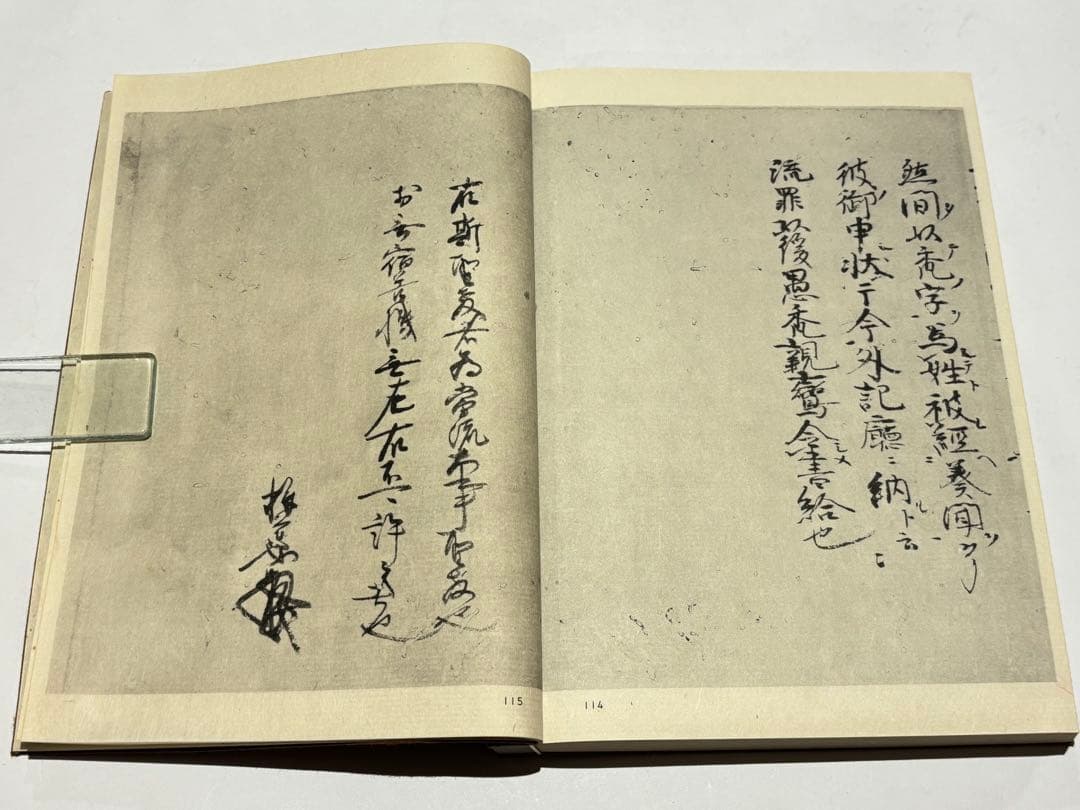 然間以禿字為姓被經奏聞了
彼御申状于今外記廳納ト云々
流罪以後愚禿親鸞令書給也
114
右斯聖教者為當流大事聖教也
於無宿善機無左右不可許之者也
釋蓮如
115